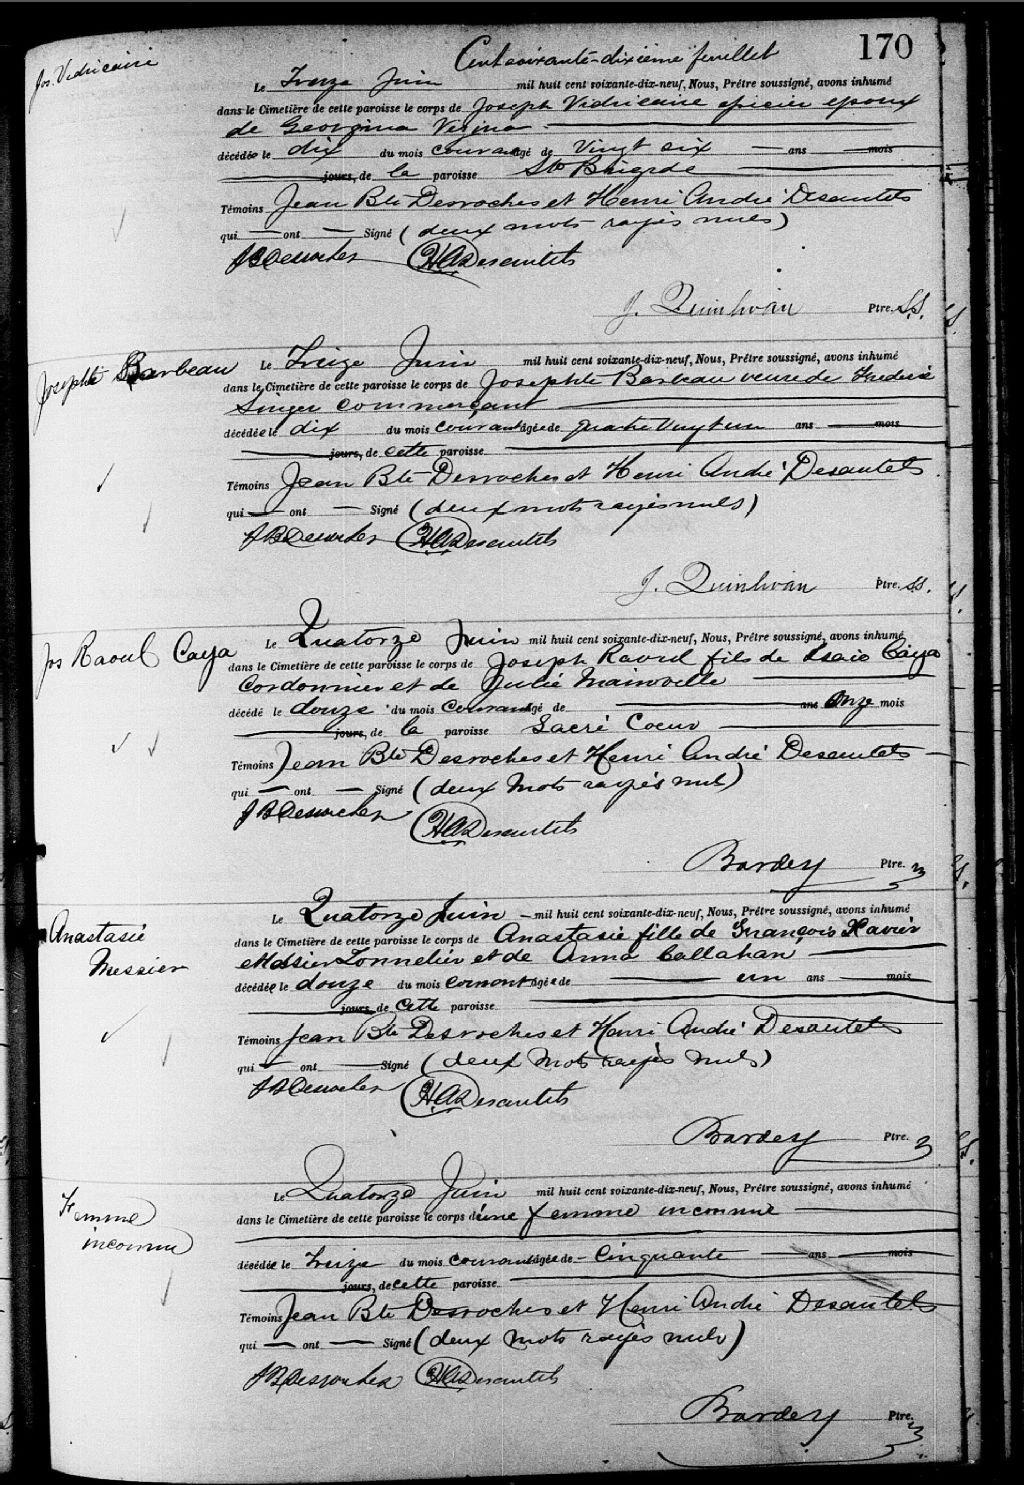 Cent soixante-dixième feuillet 170
Jos. Vidricaire
Le Treize Juin mil huit cent soixante-dix-neuf, Nous, Prêtre soussigné, avons inhumé
dans le Cimetière de cette paroisse le corps de Joseph Vidricaire epicier epoux
de Georgina Vezina
décédé le dix du mois courant âgé de Vingt six ans mois
jours, de la paroisse Ste Brigide
Témoins Jean Bte Desroches et Henri André Desautels
qui ont Signé (deux mots rayés nuls)
JBDesroches HADesautels
J. Quinlivan Ptre. SS.
Josephte Barbeau
Le Treize Juin mil huit cent soixante-dix-neuf, Nous, Prêtre soussigné, avons inhumé
dans le Cimetière de cette paroisse le corps de Josephte Barbeau veuve de Frederic
Singer commerçant
décédée le dix du mois courant âgée de quatre vingt un ans mois
jours, de cette paroisse
Témoins Jean Bte Desroches et Henri André Desautels
qui ont Signé (deux mots rayés nuls)
JBDesroches HADesautels
J. Quinlivan Ptre. SS.
Jos Raoul Caya
Le Quatorze Juin mil huit cent soixante-dix-neuf, Nous, Prêtre soussigné, avons inhumé
dans le Cimetière de cette paroisse le corps de Joseph Raoul fils de Isaie Caya
Cordonnier et de Julie Mainville
décédé le douze du mois courant âgé de ans Onze mois
jours, de la paroisse Sacré Coeur
Témoins Jean Bte Desroches et Henri André Desautels
qui ont Signé (deux mots rayés nul)
JBDesroches
HADesautels
Bardey Ptre.
Anastasie
Messier
Le Quatorze Juin mil huit cent soixante-dix-neuf, Nous, Prêtre soussigné, avons inhumé
dans le Cimetière de cette paroisse le corps de Anastasie fille de François Xavier
Messier Tonnelier et de Anna Callahan
décédée le douze du mois courant âgée de un ans mois
jours, de cette paroisse
Témoins Jean Bte Desroches et Henri André Desautels
qui ont Signé (deux mots rayés nuls)
JBDesroches HADesautels
Bardey Ptre.
Femme
inconnu
Le Quatorze Juin mil huit cent soixante-dix-neuf, Nous, Prêtre soussigné, avons inhumé
dans le Cimetière de cette paroisse le corps d'une femme inconnue
décédée le Treize du mois courant âgée de Cinquante ans mois
jours, de cette paroisse
Témoins Jean Bte Desroches et Henri André Desautels
qui ont Signé (deux mots rayés nuls)
JBDesroches HADesautels
Bardey Ptre.